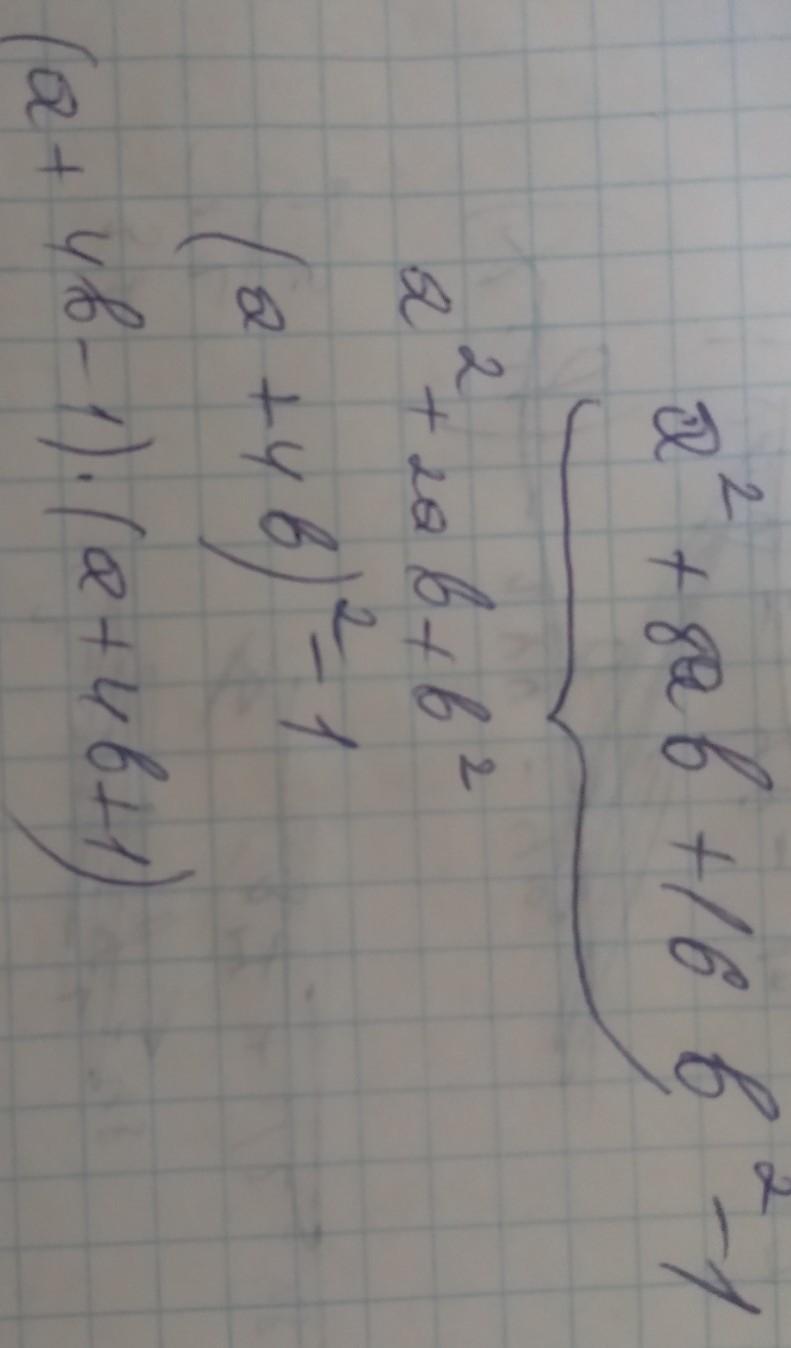 a² + 8ab + 16b² - 1
a² + 2ab + b²
(a + 4b)² - 1
(a + 4b - 1) · (a + 4b + 1)